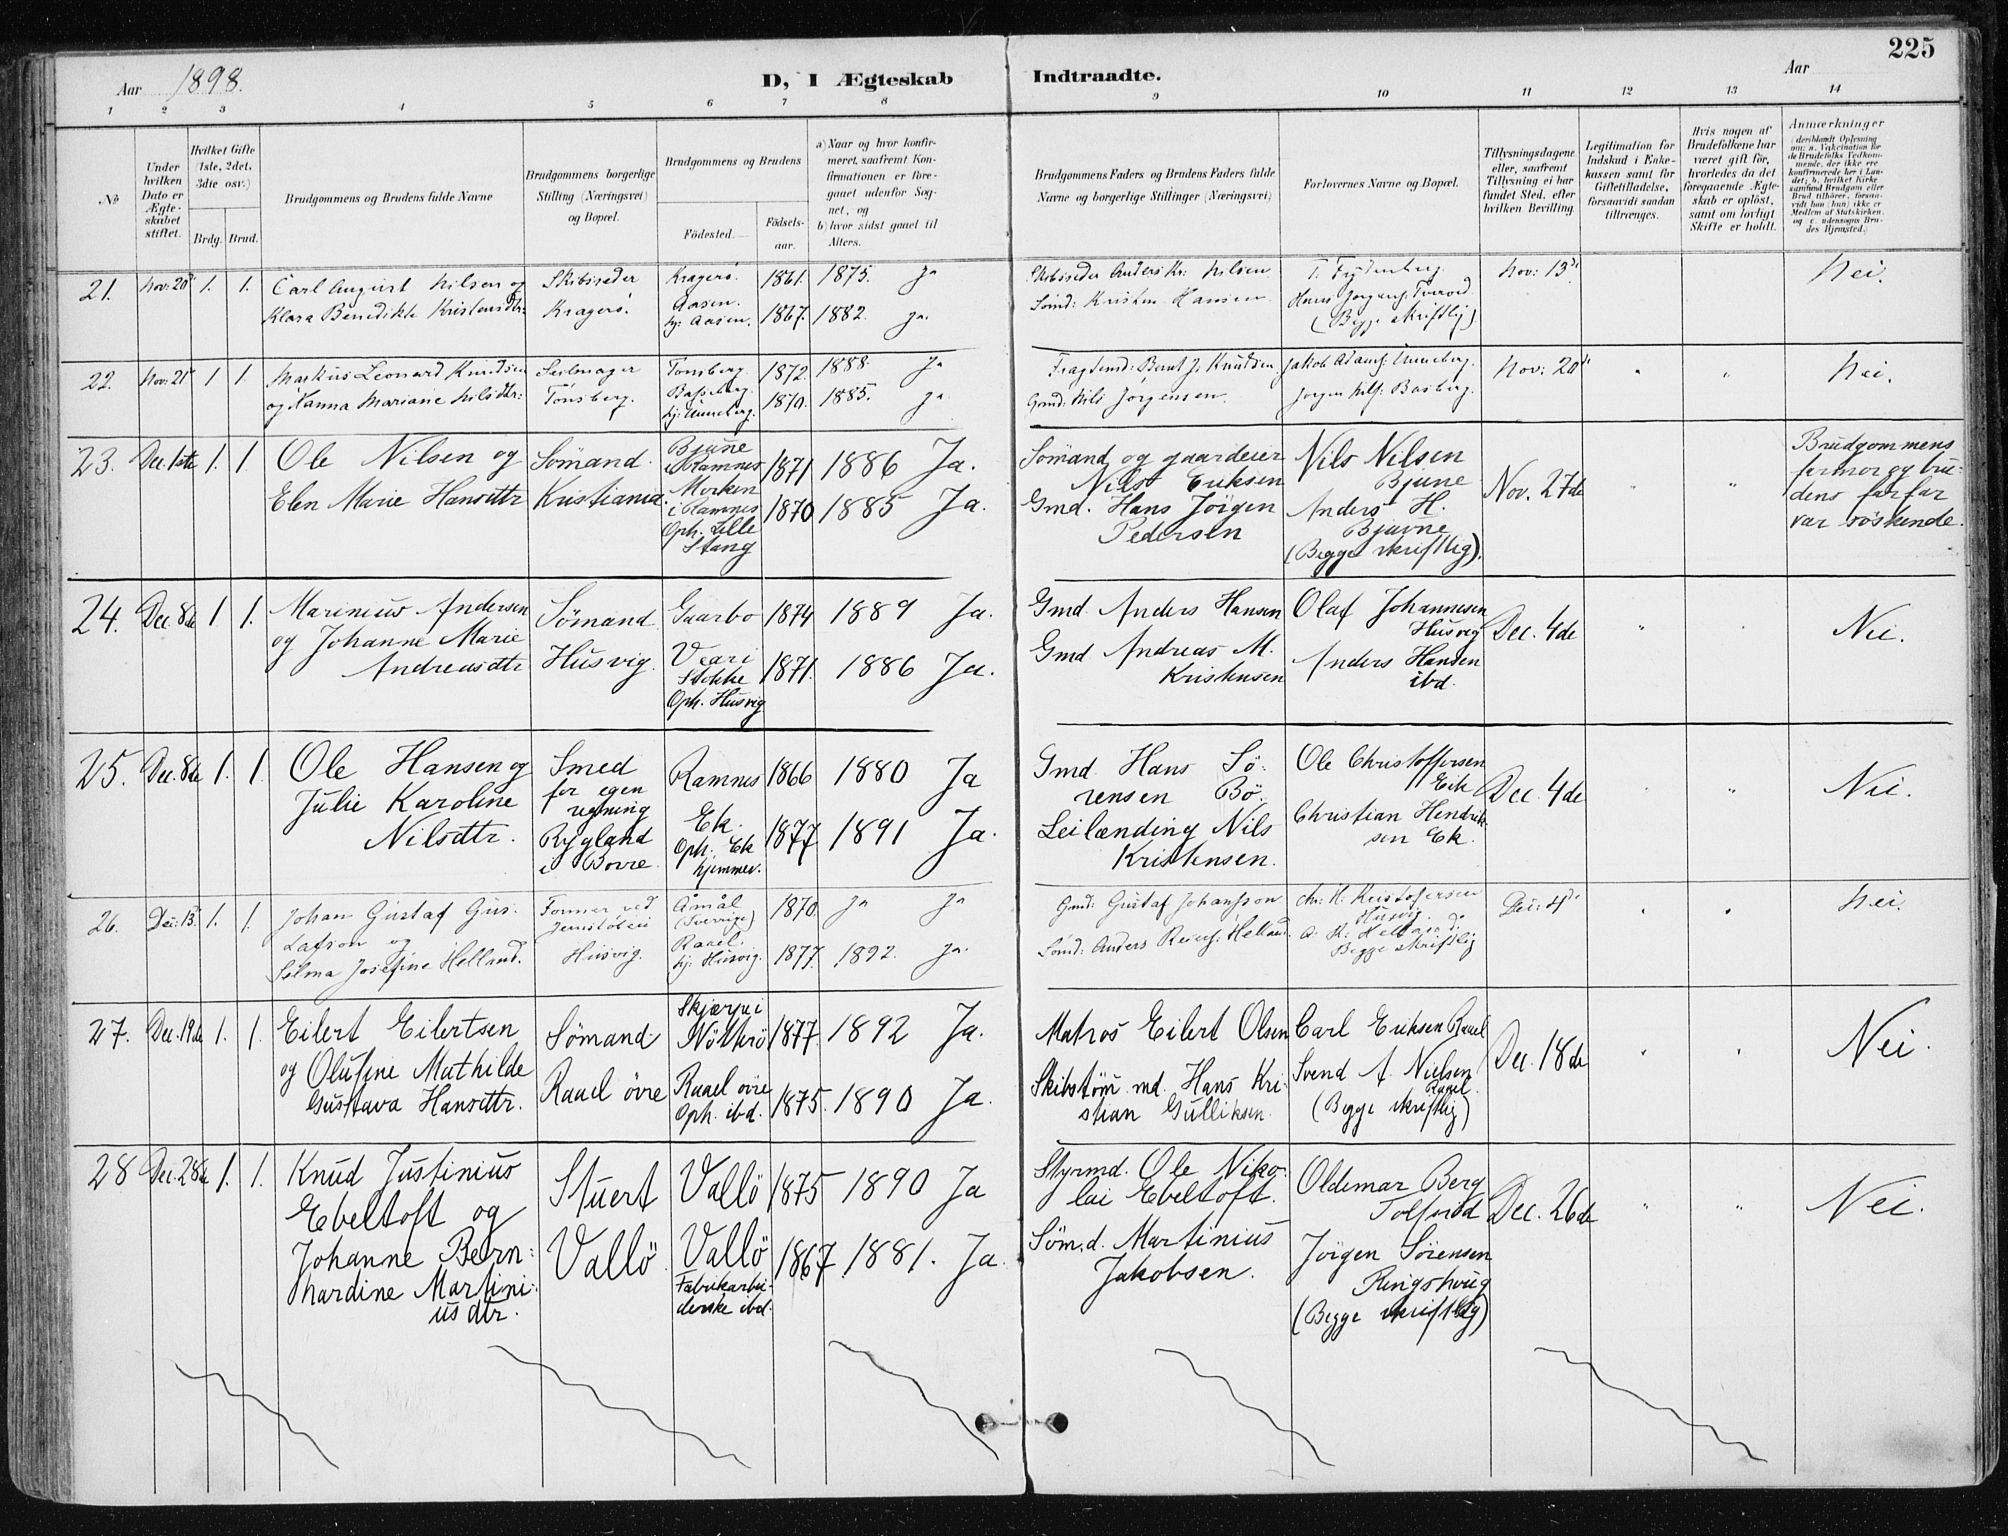 225
Aar 1898.
D, I Ægteskab Indtraadte.
Aar
1 2 3 4 5 6 7 8 9 10 11 12 13 14
No
Under hvilken Dato er Ægteskabet stiftet.
Hvilket Gifte (1ste, 2det, 3die osv.)
Brdg. Brud.
Brudgommens og Brudens fulde Navne
Brudgommens borgerlige Stilling (Næringsvei) og Bopæl.
Brudgommens og Brudens
Födested.
Födselsaar.
a) Naar og hvor konfirmeret, saafremt Konfirmationen er foregaaet udenfor Sognet, og
b) hvor sidst gaaet til Alters.
Brudgommens Faders og Brudens Faders fulde Navne og borgerlige Stillinger (Næringsvei)
Forlovernes Navne og Bopæl.
Tillysningsdagene eller, saafremt Tillysning ei har fundet Sted, efter hvilken Bevilling.
Legitimation for Indskud i Enkekassen samt for Giftetilladelse, forsaavidt saadan tiltrænges.
Hvis nogen af Brudefolkene har været gift för, hvorledes da det foregaaende Ægteskab er oplöst, samt om lovligt Skifte er holdt.
Anmærkninger
21. Nov: 20de 1. 1. Carl August Nilsen og Skibsreder Kragerö. 1861. 1875. Ja Skibsreder Anders Kr: Nilsen Nov: 13de Nei.
Klara Benedikte Kristensdtr: Kragerö. Aasen. hj: Aasen. 1867. 1882. Ja. Sömd: Kristen Hansen
(Begge skriftlig)
22. Nov: 21de 1 1. Markus Leonard Knudsen Seilmager Tönsberg. 1872. 1888. Ja Fragtemd: Bernt J. Knudsen Jakob Adamf. Unneberg. Nov: 20de " " Nei.
og Hanna Mariane Nilsdtr: Tönsberg. hj: Unneberg. 1870. 1885. Ja. Gmd: Nils Jörgensen. Jörgen Nilf: Basberg.
23. Dec. 1ste 1. 1 Ole Nilsen og Sömand Bjune i Ramnes 1871 1886 Ja. Sömand og gaardeier Nils Eriksen Nils Nilsen Bjune Nov. 27de " " Brudgommens
farmor og brudens farfar
var söskende.
Elen Marie Hansdtr Kristiania Morken i Ramnes Oph. Lille Stang 1870 1885 Ja. Gmd. Hans Jörgen Pedersen Anders H. Bjuvne
(Begge skriftlig).
24. Dec. 8de 1 1. Marinius Andersen Sömand Gaarbo 1874 1889 Ja. Gmd Anders Hansen Olaf Johannesen Husvig Dec. 4de " Nei.
og Johanne Marie Andreasdtr Husvig. Veari Stokke Oph. Husvig 1871. 1886 Ja. Gmd Andreas M. Kristensen Anders Hansen ibd.
25. Dec. 8de 1. 1. Ole Hansen og Smed for egen regning Ramnes 1866 1880 Ja Gmd. Hans Sörensen Bö. Ole Christoffersen Eik Dec. 4de " " Nei.
Julie Karoline Nilsdtr. Rygland i Borre Ek. Oph. Ek hjemmev. 1877 1891 Ja. Leilænding Nils Kristensen. Christian Hendriksen Ek.
26. Dec: 13. 1. 1. Johan Gustaf Gustafson og Former ved Jernstöberi Åmål (Sverrige) 1870. Ja Ja Gmd: Gustaf Johansson Chr: H: Kristofersen Husvig. Dec: 4de " " Nei.
Selma Josefine Helland. Husvig. Raael. hj: Husvig. 1877. 1892. Ja. Sömd: Anders Reierf: Helland. A. R: Helland
Begge skriftlig
27. Dec. 19de 1. 1. Eilert Eilertsen Sömand Skjærpe i Nötterö 1877 1892 Ja. Matros Eilert Olsen Carl Eriksen Raael Dec. 18de " " Nei.
og Olufine Mathilde Gustava Hansdtr. Raael övre Raael övre Oph. ibd. 1875. 1890 Ja. Skibstöm.md. Hans Kristian Gulliksen. Svend A. Nielsen Raael
(Begge skriftlig)
28 Dec. 28de 1. 1. Knud Justinius Ebeltoft og Stuert Vallö 1875 1890 Ja Styrmd. Ole Nikolai Ebeltoft. Oldemar Berg Tolfsröd Dec. 26de " " Nei.
Johanne Bernhardine Martiniusdtr. Vallö Vallö Fabrikarbeiderske ibd. 1867 1881. Ja. Söm.d. Martinius Jakobsen. Jörgen Sörensen Ringshaug
(Begge skriftlig)